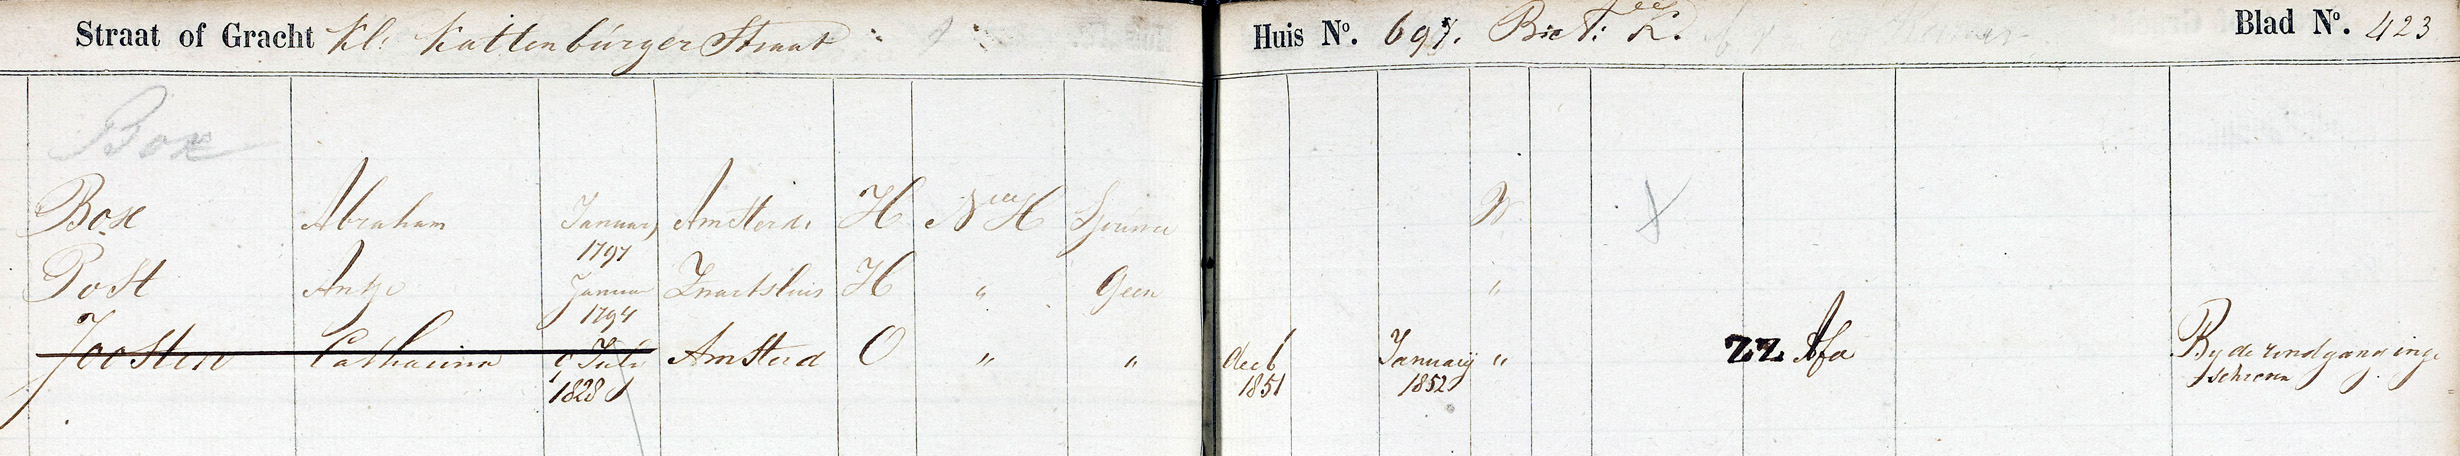 Straat of Gracht Kl: Kattenburger Straat Huis No. 697. Blad No. 423
Box
Box Abraham January Amsterd: H N H W
1797
Post Antje Januar Zwartsluis H " Geen "
1794
Joosten Catharina 9 Julij Amsterd O " " dec 6 January " ZZ Afa By de rondgang inge
1828 1851 1852 schreven